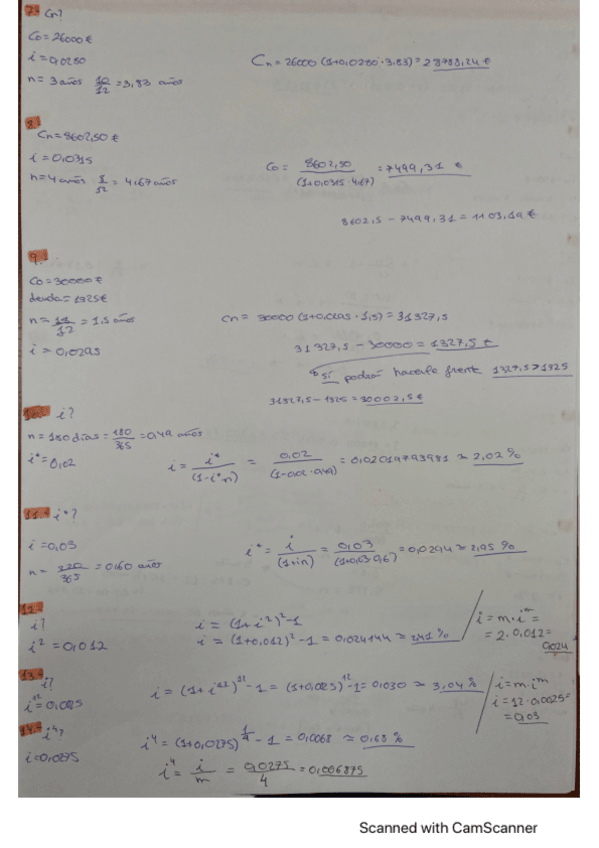 7.- Cn?
Co = 26000 €
i = 0,0280
n = 3 años 10/12 = 3,83 años
Cn = 26000 (1+0,0280 · 3,83) = 28788,24 €
8.-
Cn = 8602,50 €
i = 0,0315
n = 4 años 8/12 = 4,67 años
Co = 8602,50 / (1+0,0315 · 4,67) = 7499,31 €
8602,5 - 7499,31 = 1103,19 €
9.-
Co = 30000 €
deuda = 1325 €
n = /12 = 1,5 años
i = 0,0295
Cn = 30000 (1+0,0295 · 1,5) = 31327,5
31327,5 - 30000 = 1327,5 €
Sí podrá hacerle frente 1327,5 > 1325
31327,5 - 1325 = 30002,5 €
10.- i?
n = 180 días = 180/365 = 0,49 años
i* = 0,02
i = i* / (1-i*·n) = 0,02 / (1-0,02 · 0,49) = 0,02019793981 ≈ 2,02 %
11.- i*?
i = 0,03
n = 220/365 = 0,60 años
i* = i / (1+in) = 0,03 / (1+0,03·0,6) = 0,0294 ≈ 2,95 %
12.-
i?
i² = 0,012
i = (1+i²)²-1
i = (1+0,012)² - 1 = 0,024144 ≈ 2,41 %
i = m·i^m =
= 2 · 0,012 =
0,024
13.- i?
i^12 = 0,025
i = (1+i^12)^12 - 1 = (1+0,025)^12 - 1 = 0,030 ≈ 3,04 %
i = m·i^m
i = 12·0,0025 =
= 0,03
14.- i⁴?
i = 0,0275
i⁴ = (1+0,0275)^1/4 - 1 = 0,0068 ≈ 0,68 %
i⁴ = i/m = 0,0275/4 = 0,006875
Scanned with CamScanner